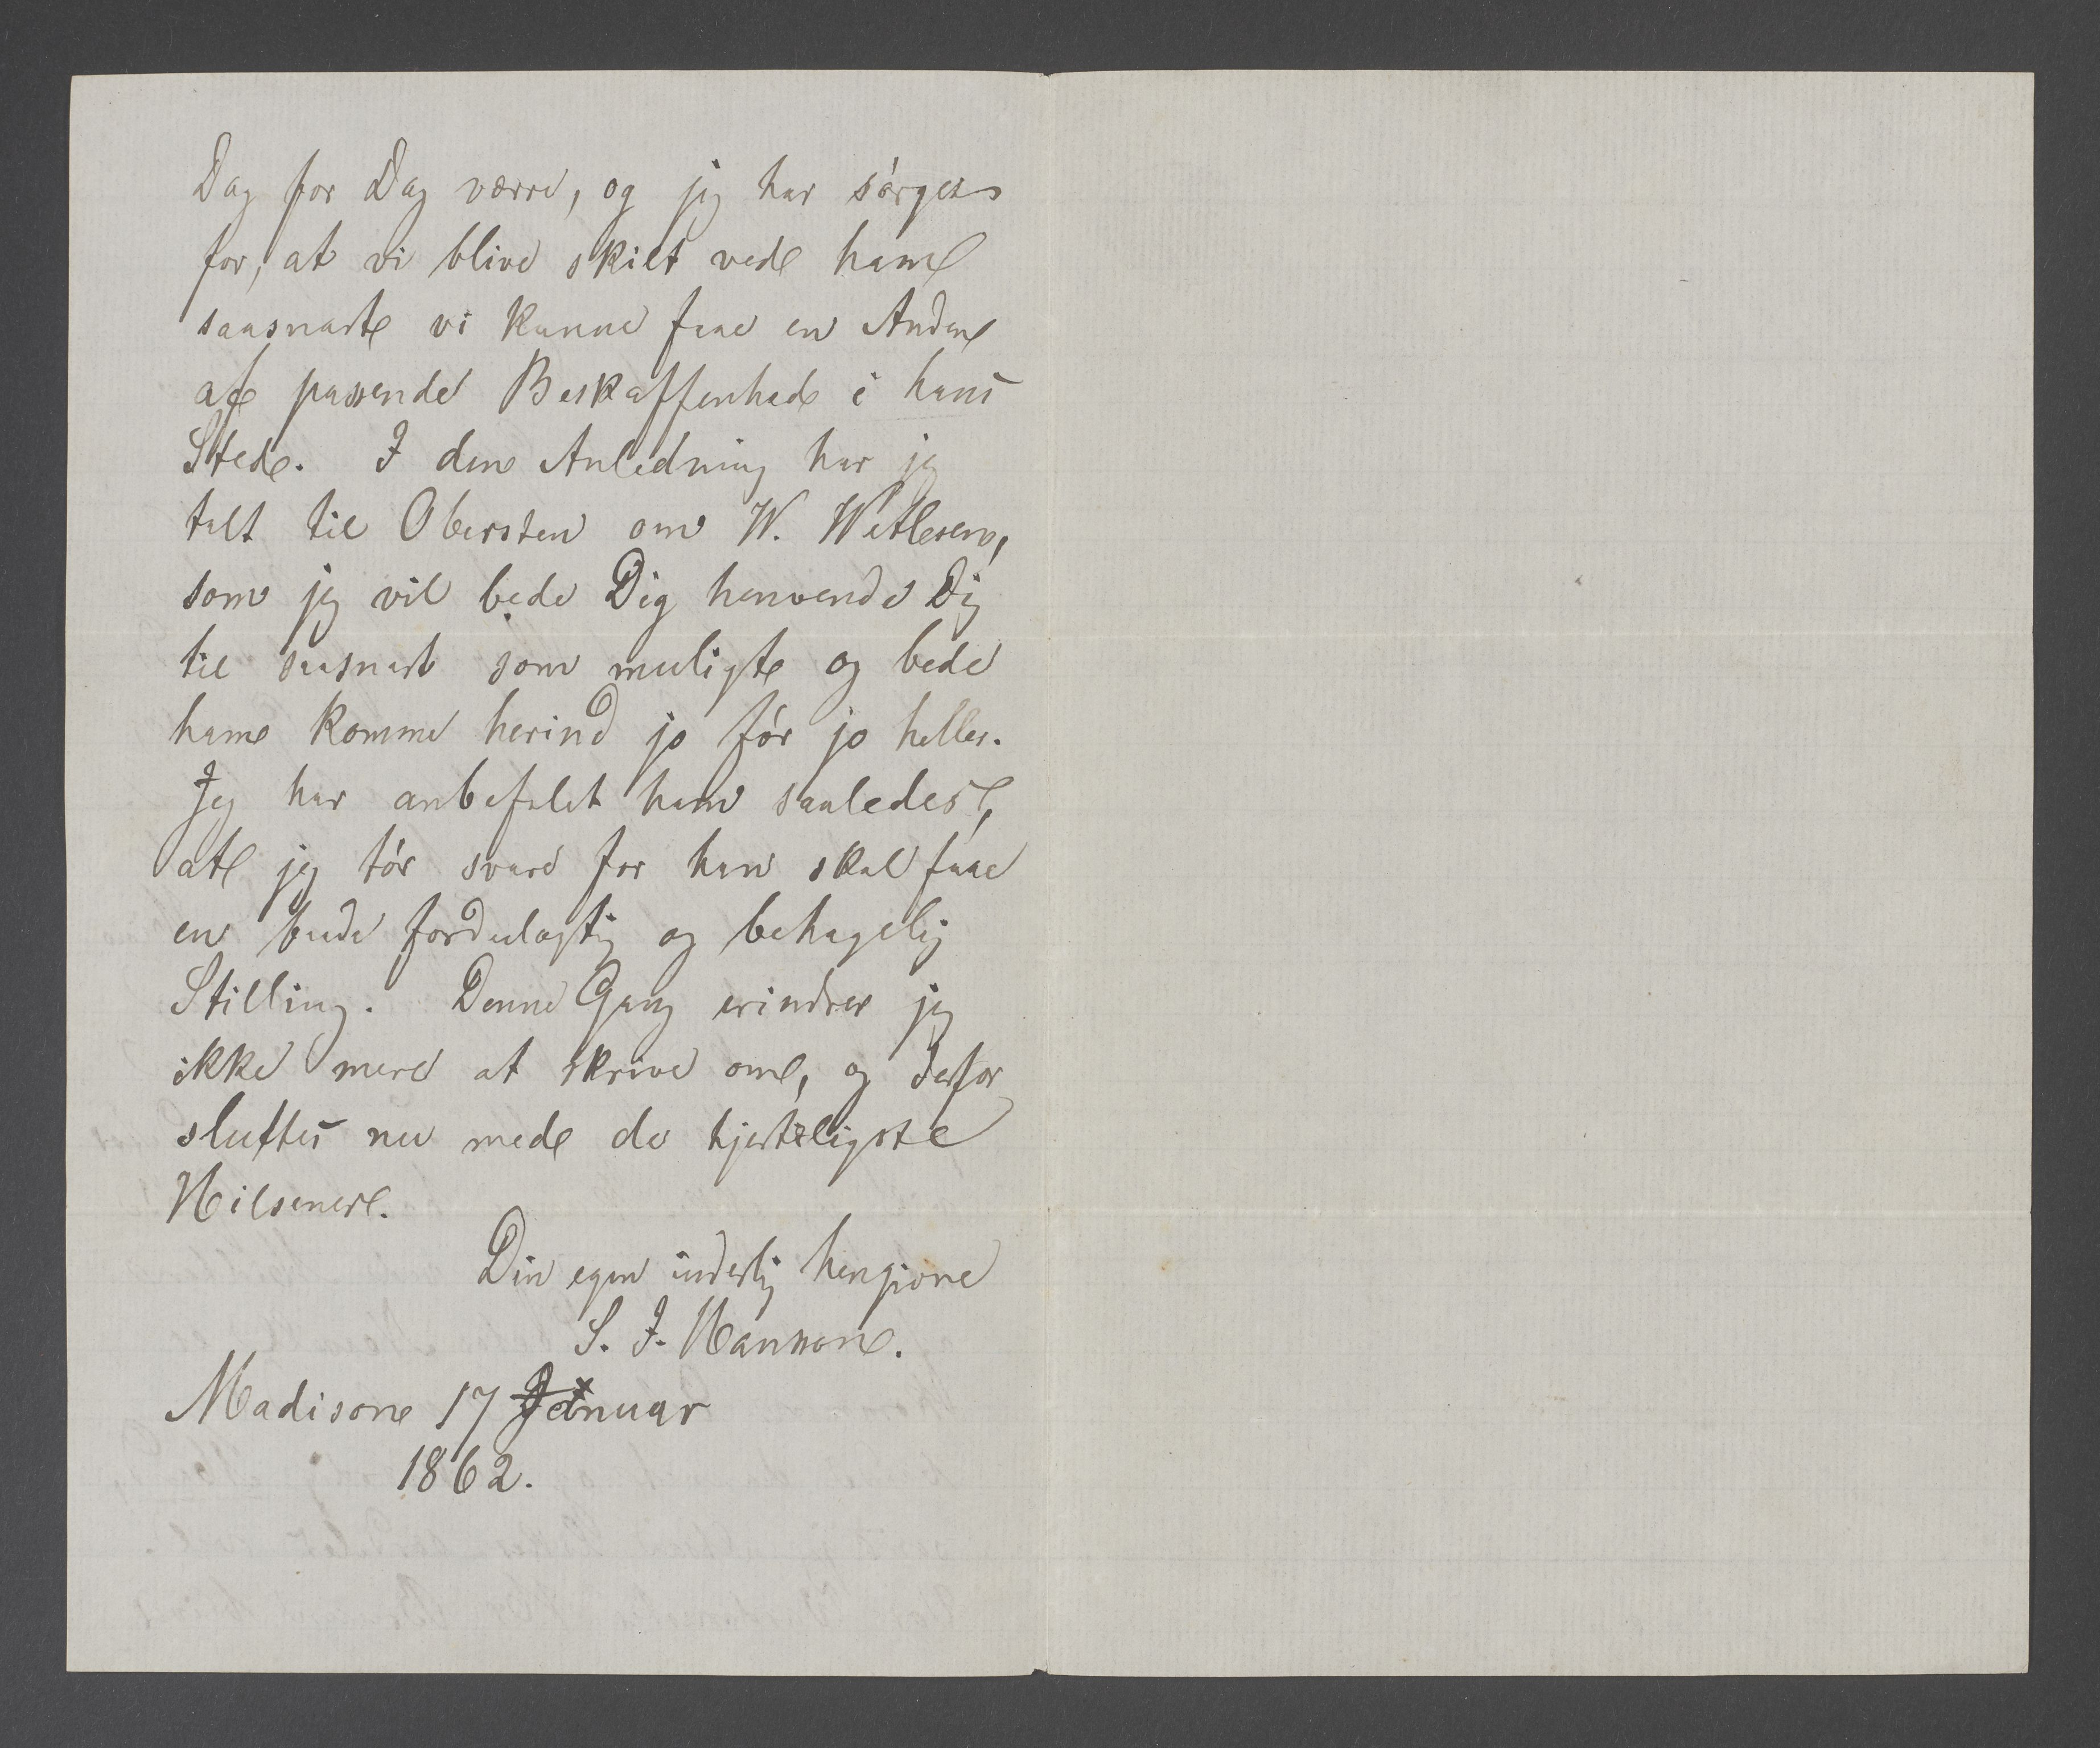 Dag for Dag værre, og jeg har sørget
for, at vi blive skilt ved ham
saasnart vi kunne faae en Anden
af passende Beskaffenhed i hans
Sted. I den Anledning har jeg
talt til Obersten om W. Wetlesen,
som jeg vil bede Dig henvende Dig
til saasnart som muligt og bede
ham komme herind jo før jo heller.
Jeg har anbefalet ham saaledes,
at jeg tør svare for han skal faae
en baade fordelagtig og behagelig
Stilling. Denne Gang erindrer jeg
ikke mere at skrive om, og derfor
sluttes nu med de hjerteligste
Hilsener.
Din egen inderlig hengivne
S. J. Hansson.
Madison 17 Januar
1862.